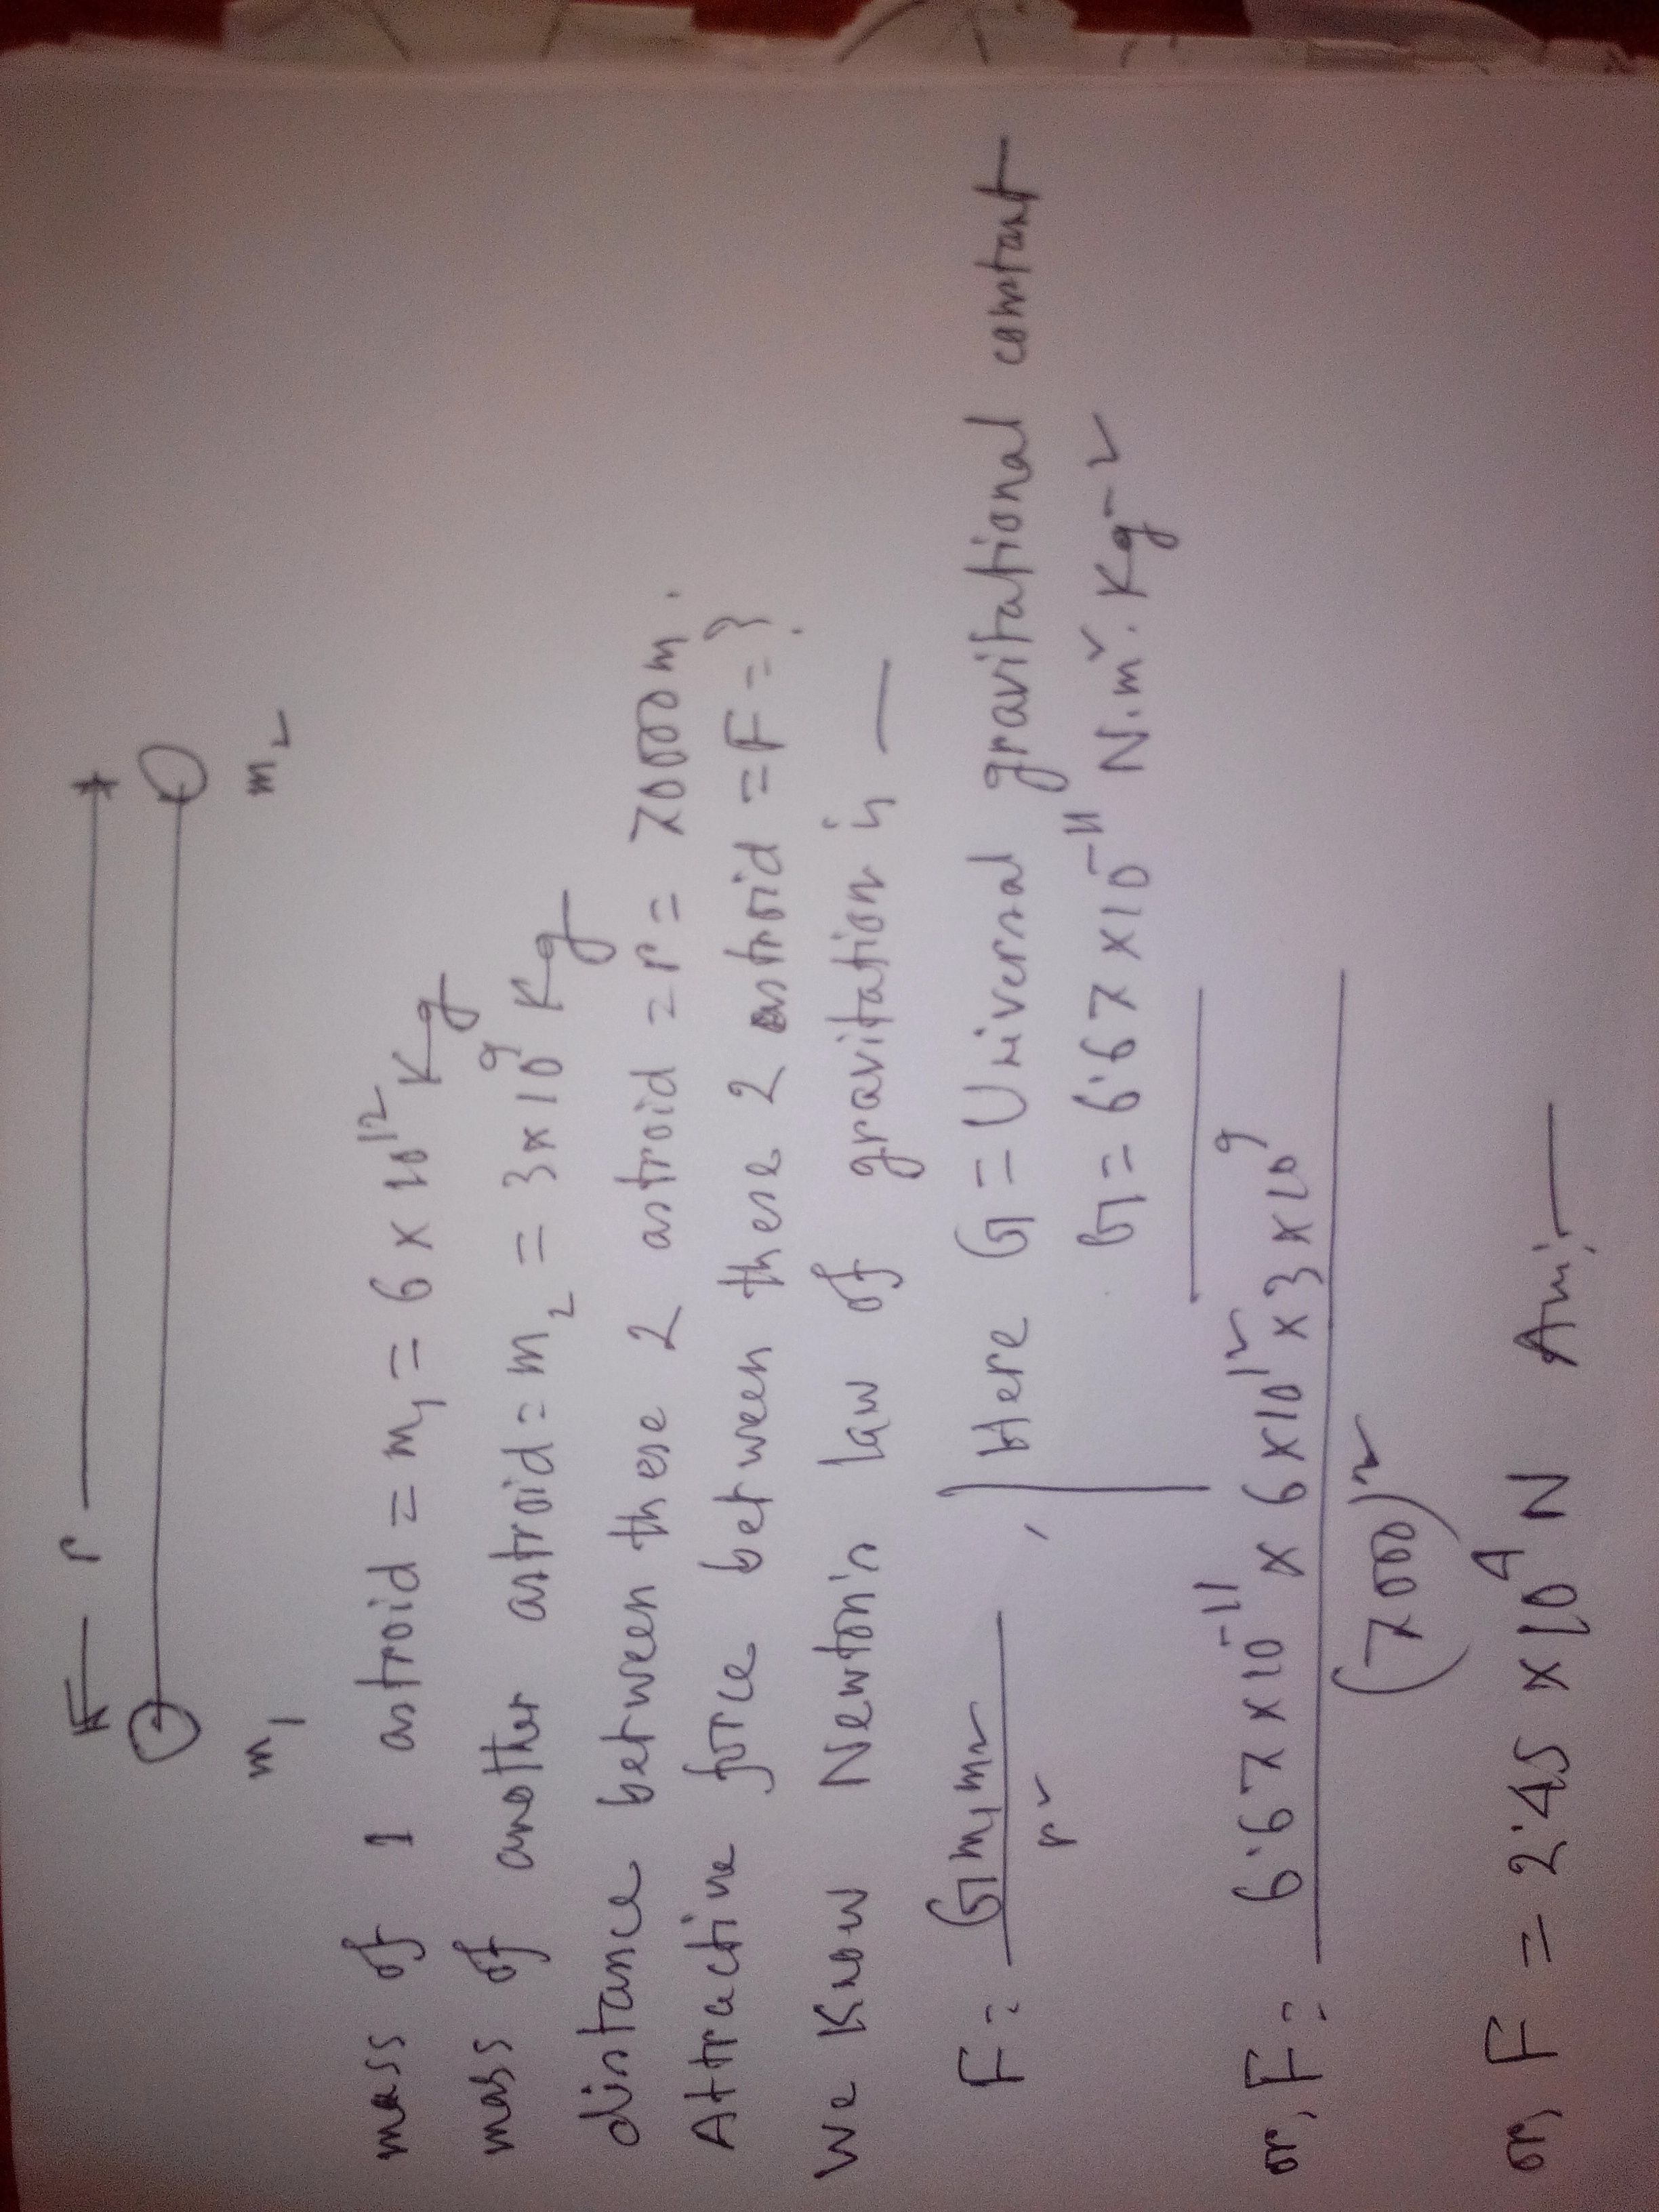 r
m₁ m₂
mass of 1 astroid = m₁ = 6 x 10¹² Kg
mass of another astroid = m₂ = 3 x 10⁹ Kg
distance between these 2 astroid = r = 7000 m.
Attractive force between these 2 astroid = F = ?
We Know Newton's law of gravitation is —
F = G m₁ m₂ / r² , Here G = Universal gravitational constant
G = 6.67 x 10⁻¹¹ N.m². Kg⁻²
or, F = 6.67 x 10⁻¹¹ x 6 x 10¹² x 3 x 10⁹ / (7000)²
or, F = 2.45 x 10⁴ N Ans:—